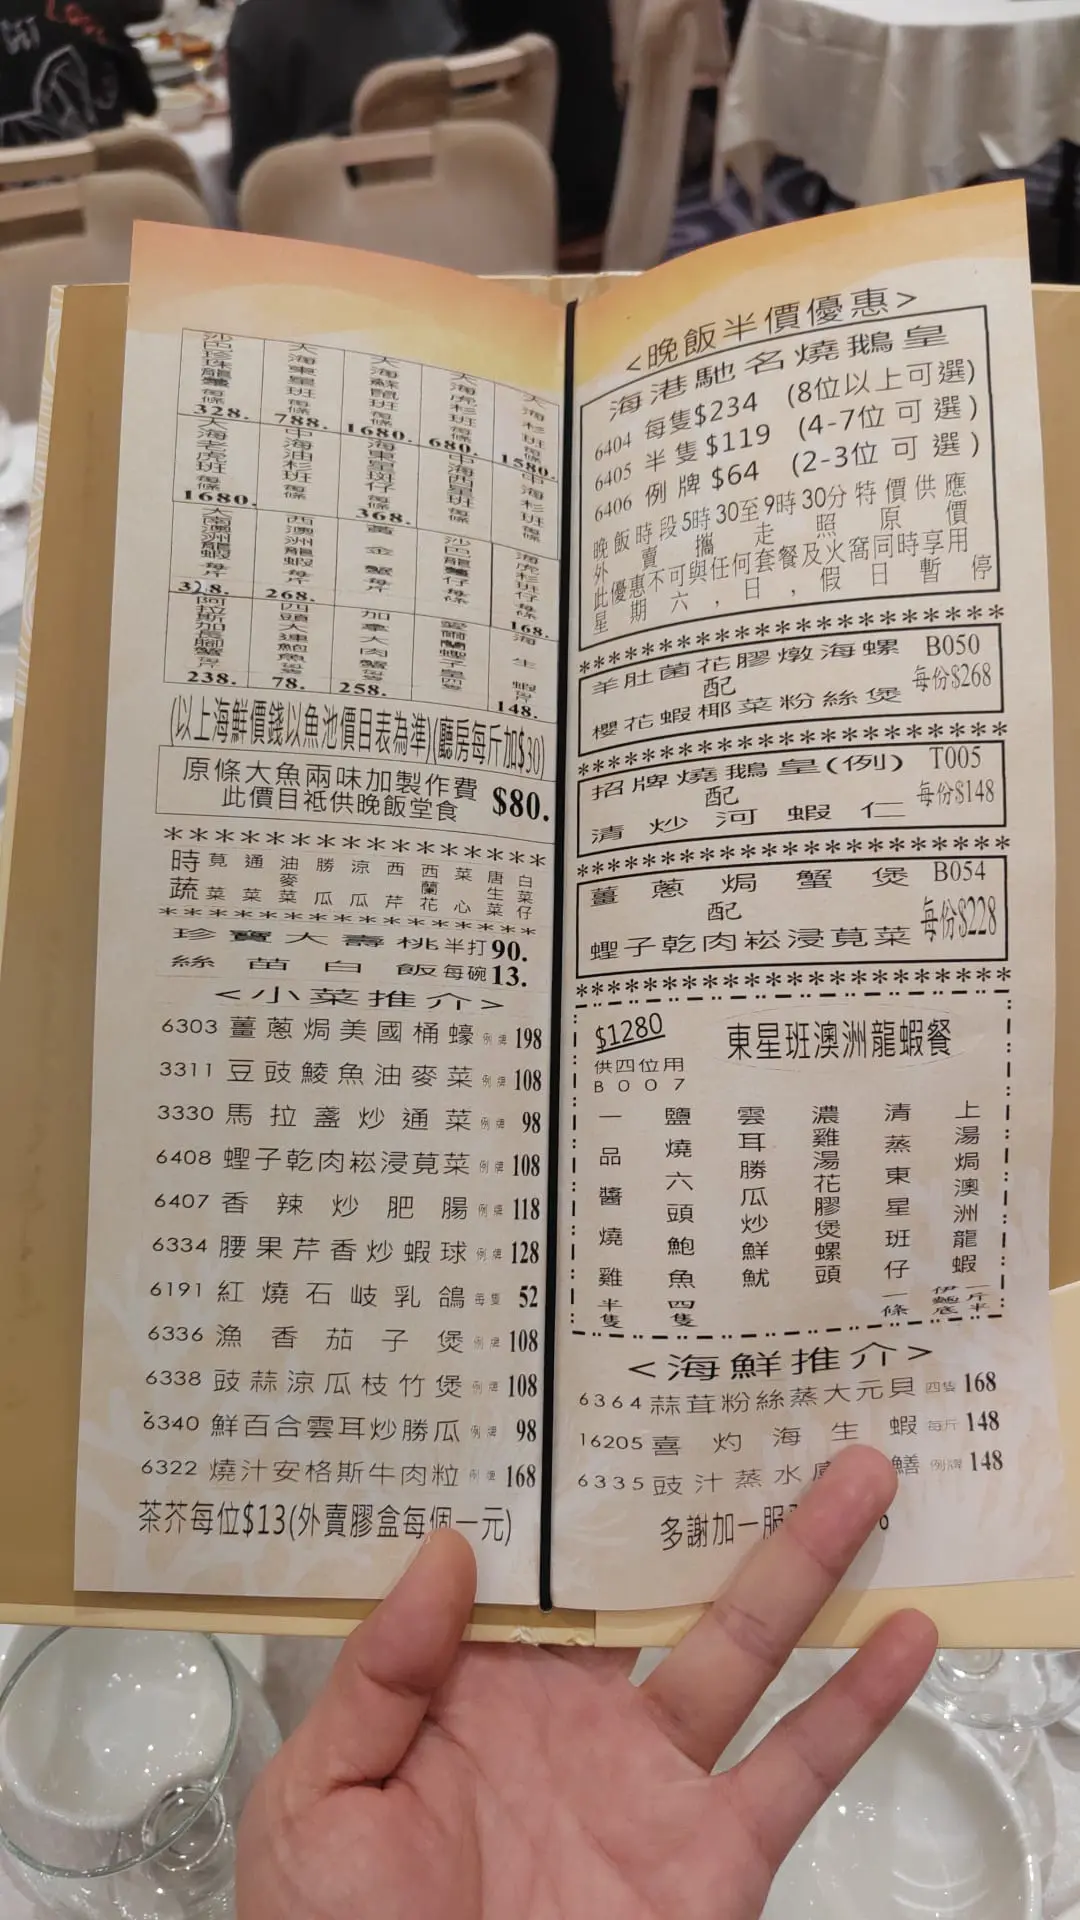 沙巴珍珠龍躉每條 328.
大海東星班每條 788.
大海蘇鼠班每條 1680.
大海虎杉班每條 680.
大海杉班每條 1580.
大海老虎班每條 1680.
中海油杉班每條
海東星斑仔每條 368.
中海西星班每條
中海杉班每條
大南澳洲龍蝦每斤 328.
西澳洲龍蝦每斤 268.
黃金蟹每斤
沙巴龍躉仔每條
海虎杉班仔每條 168.
阿拉斯加長腳蟹每斤 238.
四頭大連鮑魚每隻 78.
加拿大肉蟹每斤 258.
愛爾蘭蟶子皇四隻
海生蝦每斤 148.
(以上海鮮價錢以魚池價目表為準)(廳房每斤加$30)
原條大魚兩味加製作費 $80.
此價目祗供晚飯堂食
時蔬 莧菜 通菜 油麥菜 勝瓜 涼瓜 西芹 西蘭花 菜心 唐生菜 白菜仔
珍寶大壽桃半打90.
絲苗白飯每碗13.
<小菜推介>
6303 薑蔥焗美國桶蠔 例牌 198
3311 豆豉鯪魚油麥菜 例牌 108
3330 馬拉盞炒通菜 例牌 98
6408 蟶子乾肉崧浸莧菜 例牌 108
6407 香辣炒肥腸 例牌 118
6334 腰果芹香炒蝦球 例牌 128
6191 紅燒石岐乳鴿 每隻 52
6336 漁香茄子煲 例牌 108
6338 豉蒜涼瓜枝竹煲 例牌 108
6340 鮮百合雲耳炒勝瓜 例牌 98
6322 燒汁安格斯牛肉粒 例牌 168
茶芥每位$13(外賣膠盒每個一元)
<晚飯半價優惠>
海港馳名燒鵝皇
6404 每隻$234 (8位以上可選)
6405 半隻$119 (4-7位可選)
6406 例牌$64 (2-3位可選)
晚飯時段5時30至9時30分特價供應
外賣攜走照原價
此優惠不可與任何套餐及火窩同時享用
星期六,日,假日暫停
********************
羊肚菌花膠燉海螺 B050
配 每份$268
櫻花蝦椰菜粉絲煲
********************
招牌燒鵝皇(例) T005
配 每份$148
清炒河蝦仁
********************
薑蔥焗蟹煲 B054
配 每份$228
蟶子乾肉崧浸莧菜
********************
$1280 東星班澳洲龍蝦餐
供四位用
B007
上湯焗澳洲龍蝦 一斤半 伊麵底
清蒸東星班仔 一條
濃雞湯花膠煲螺頭
雲耳勝瓜炒鮮魷
鹽燒六頭鮑魚 四隻
一品醬燒雞 半隻
<海鮮推介>
6364 蒜茸粉絲蒸大元貝 四隻 168
16205 喜灼海生蝦 每斤 148
6335 豉汁蒸水 鱔 例牌 148
多謝加一服